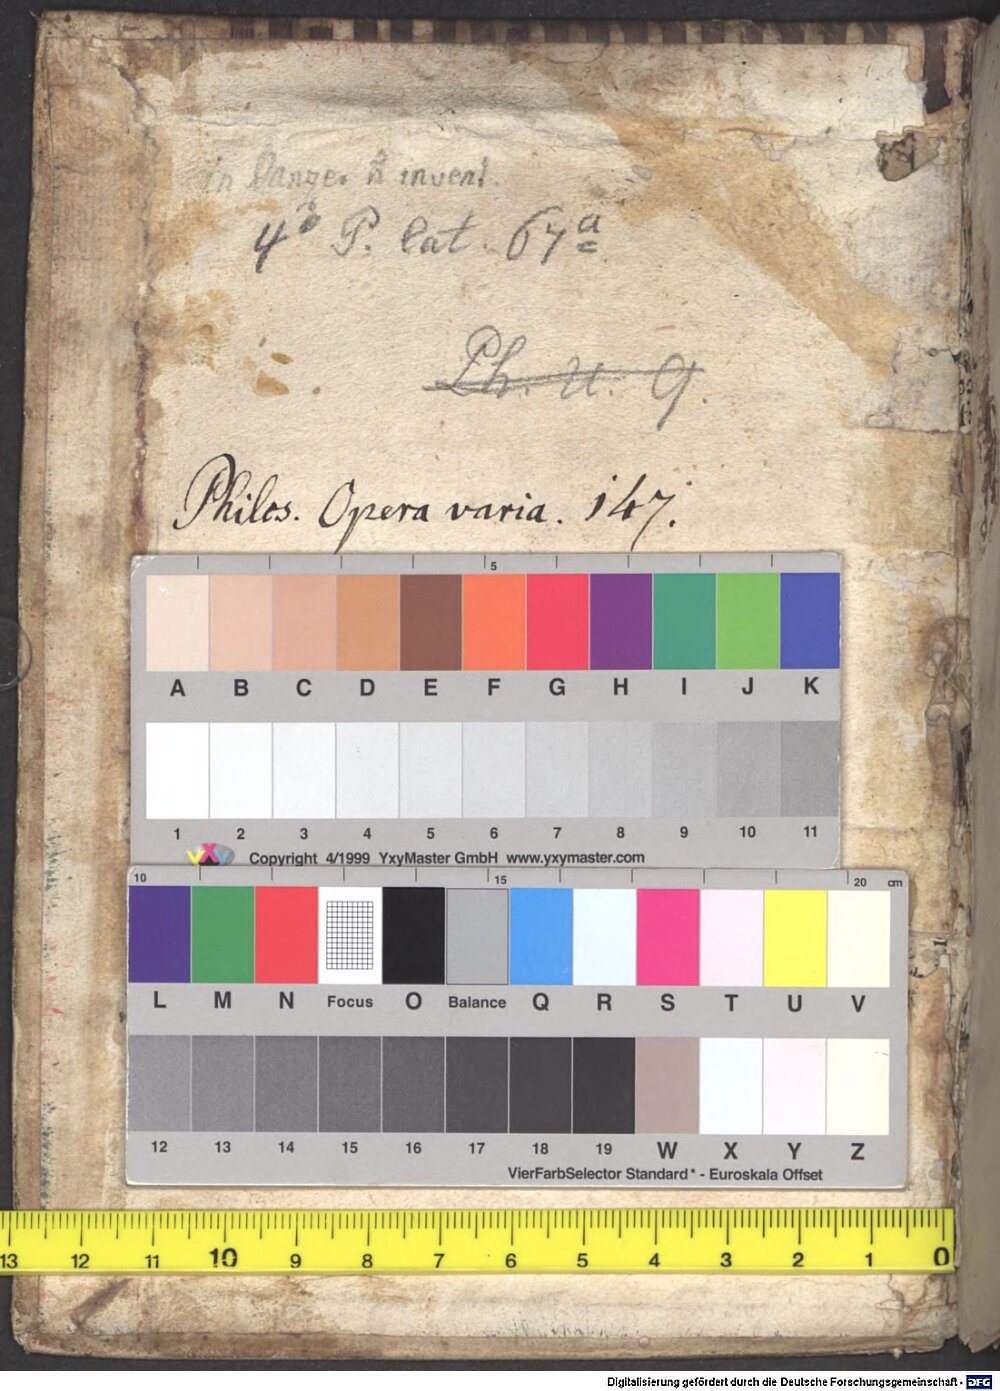 in Panzer ñ invent.
4° P. lat. 67ª
Ph. U. 9.
Philos. Opera varia. 147.
5
A B C D E F G H I J K
1 2 3 4 5 6 7 8 9 10 11
yxy Copyright 4/1999 YxyMaster GmbH www.yxymaster.com
10 15 20 cm
L M N Focus O Balance Q R S T U V
12 13 14 15 16 17 18 19 W X Y Z
VierFarbSelector Standard* - Euroskala Offset
13 12 11 10 9 8 7 6 5 4 3 2 1 0
Digitalisierung gefördert durch die Deutsche Forschungsgemeinschaft - DFG